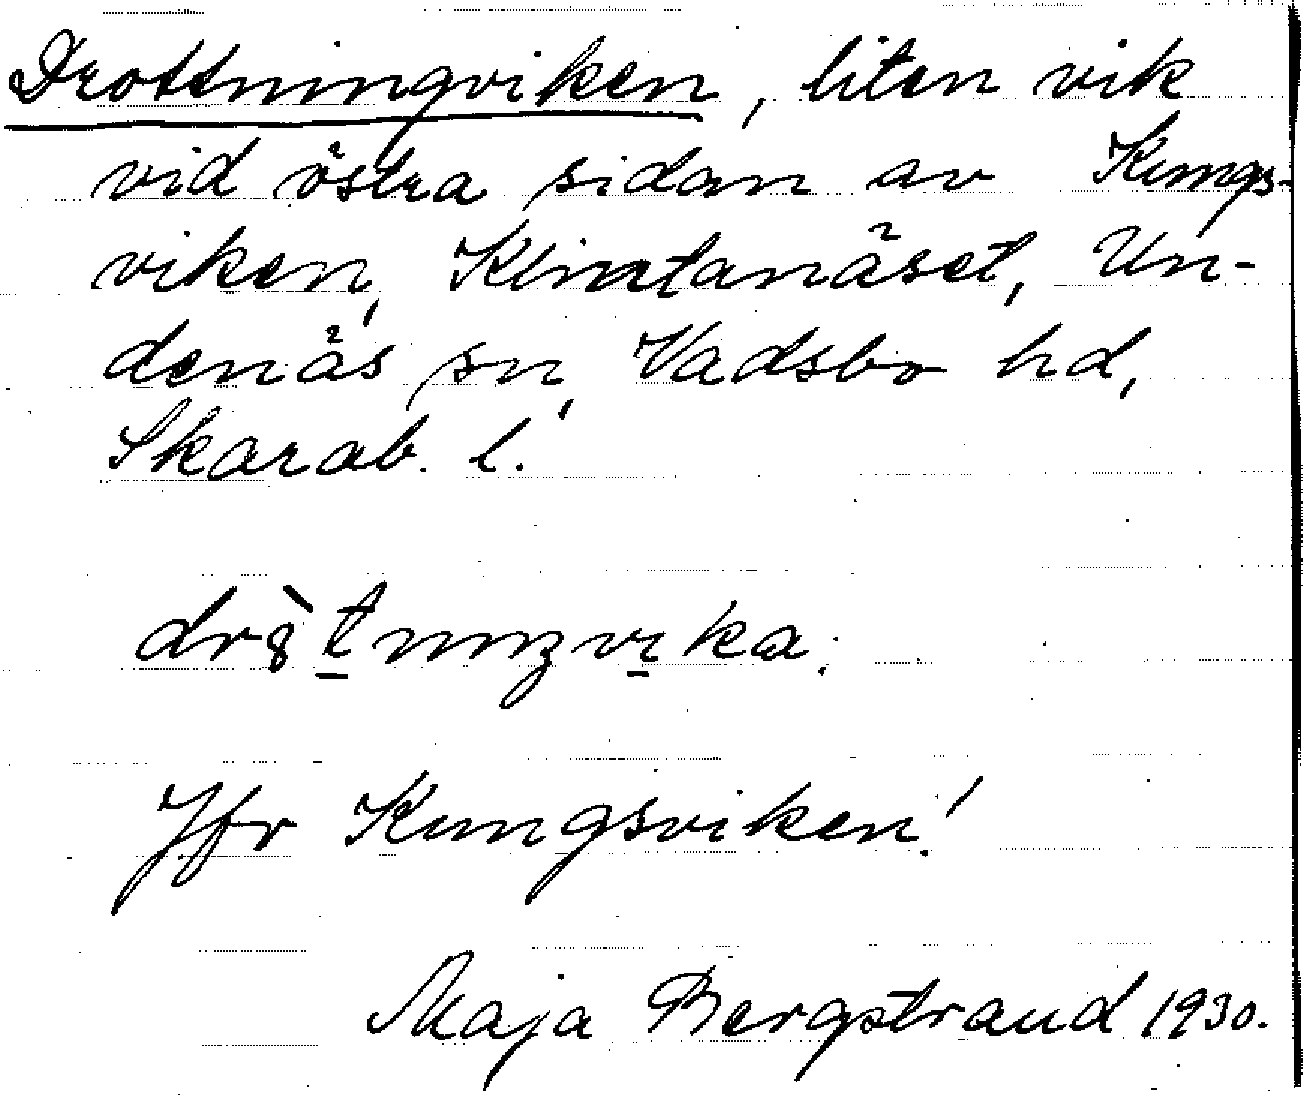 Drottningviken, liten vik
vid östra sidan av Kungs-
viken, Klintanäset, Un-
denäs sn, Vadsbo hd,
Skarab. l.
Jfr Kungsviken!
Maja Bergstrand 1930.